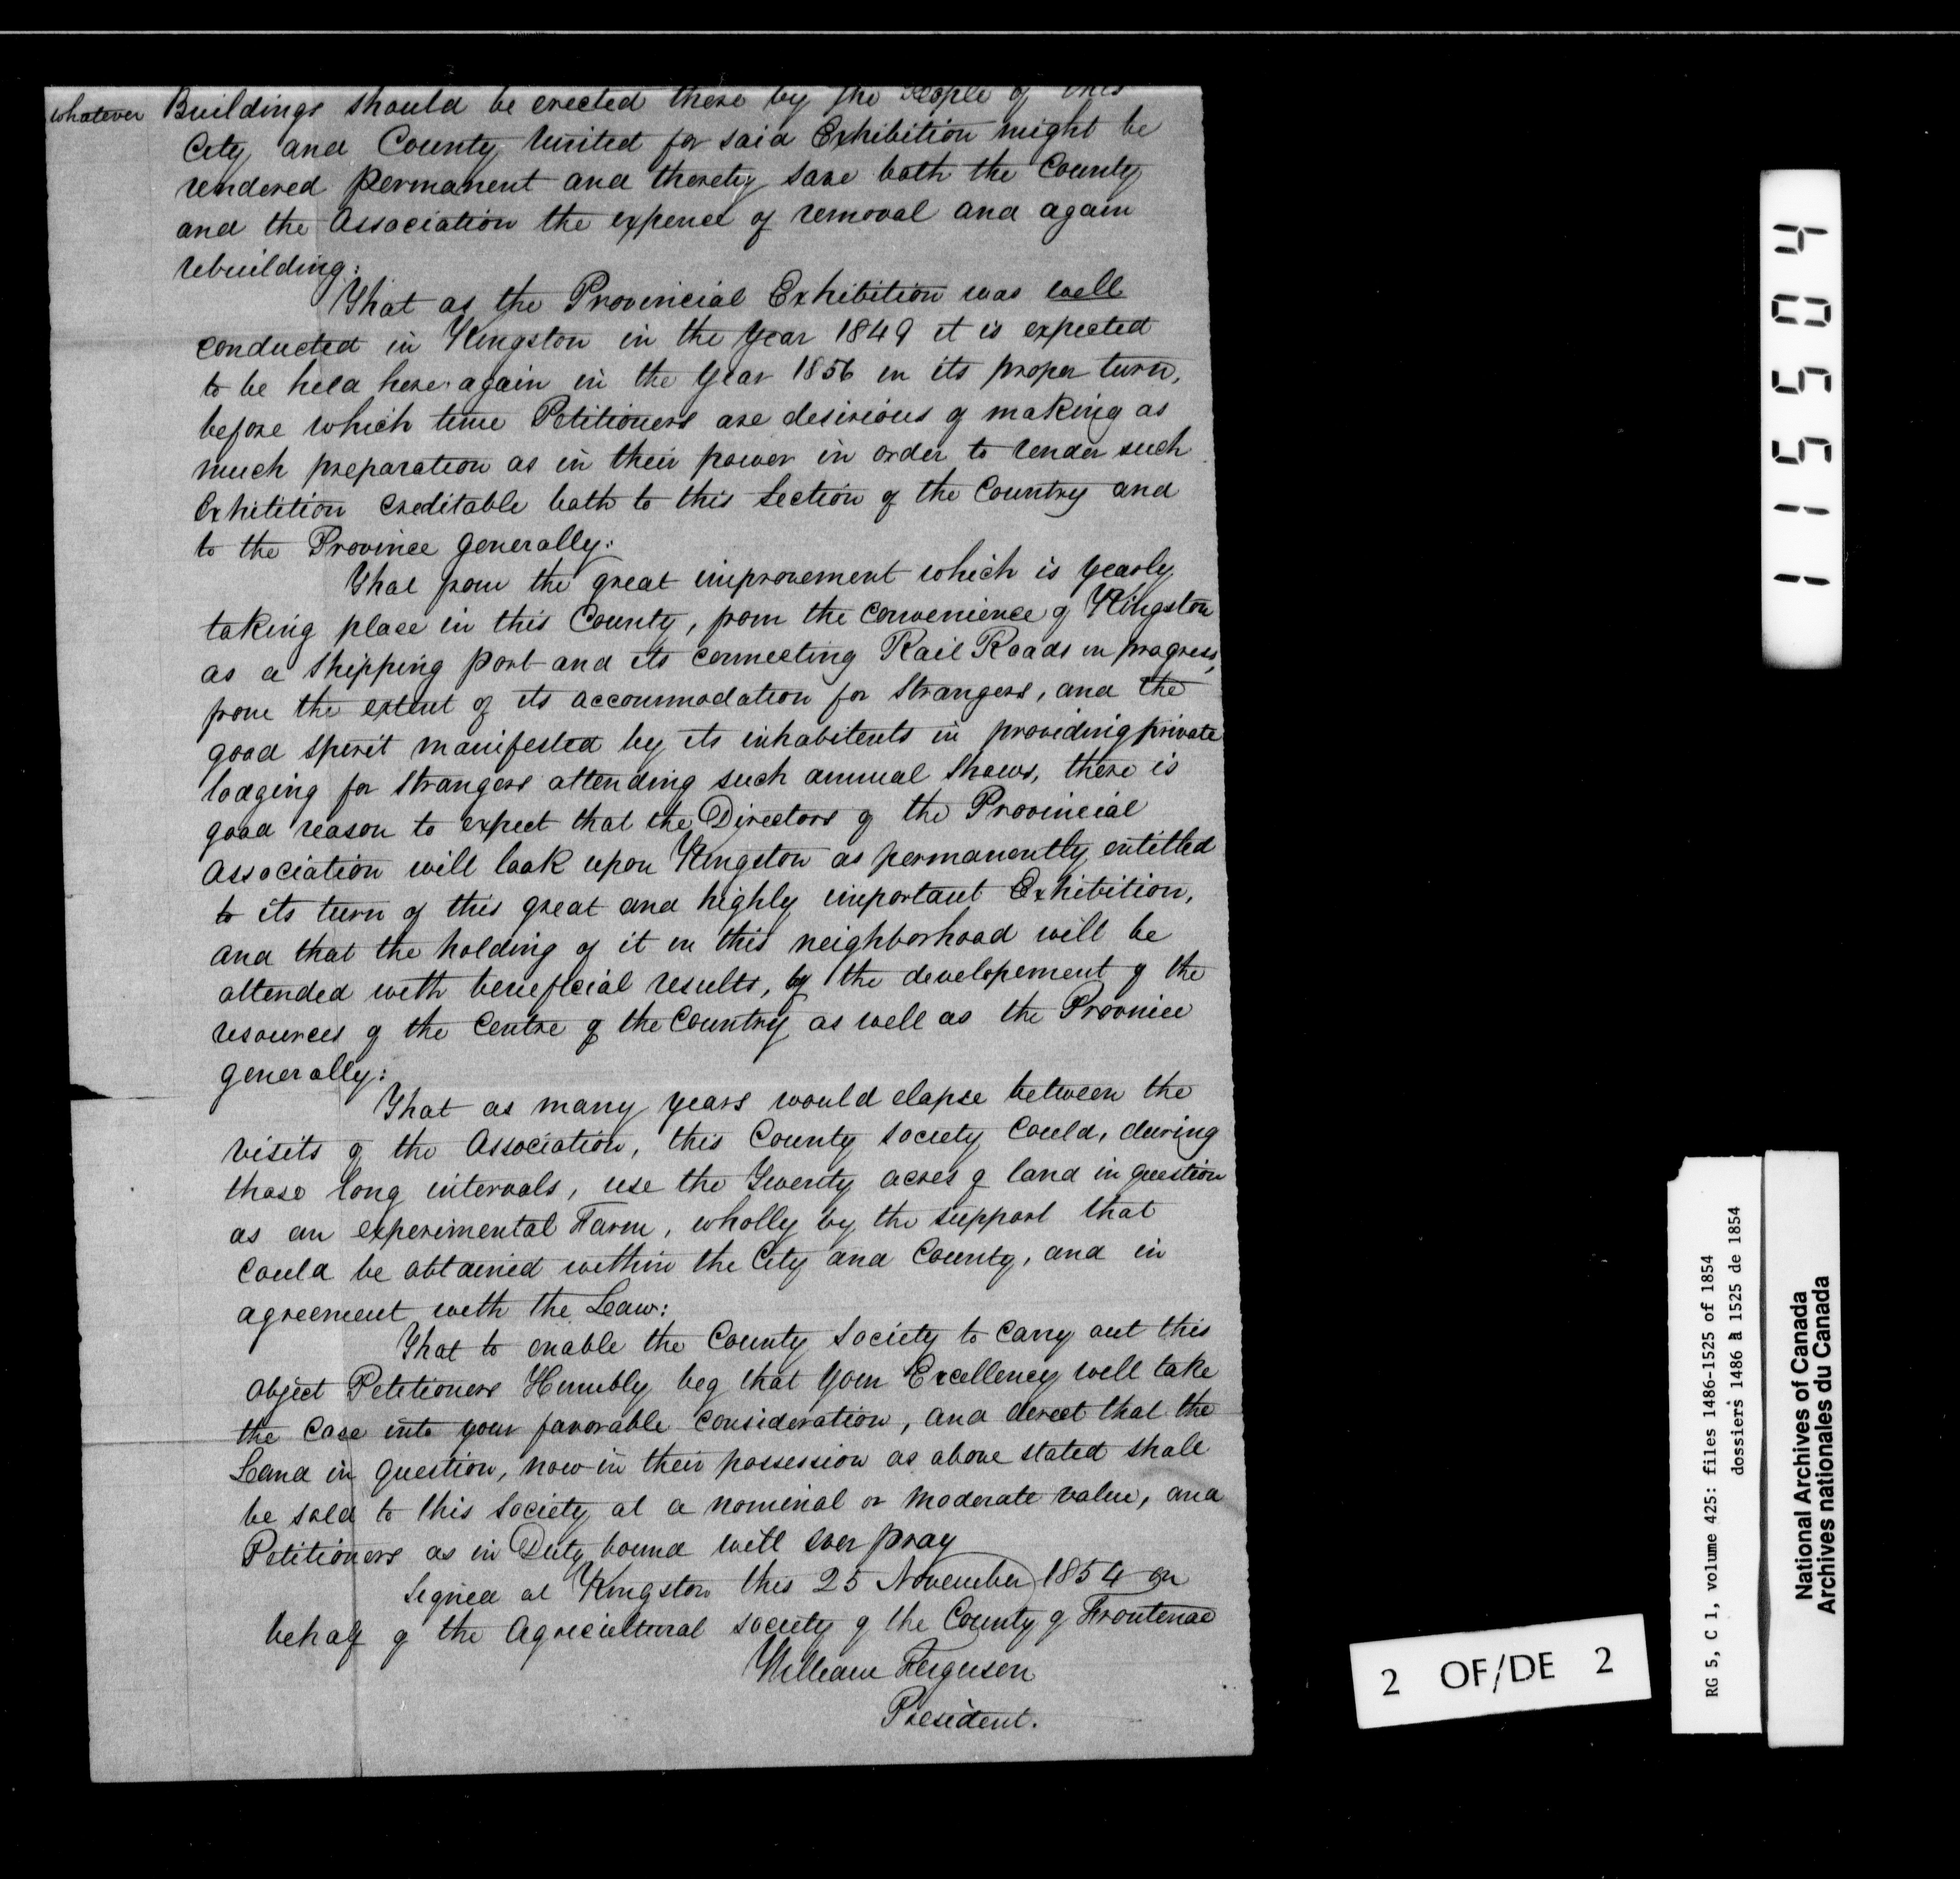 whatever Buildings should be erected there by the People of this
City and County united for said Exhibition might be
rendered permanent and thereby save both the County
and the Association the expence of removal and again
rebuilding:
That as the Provincial Exhibition was well
conducted in Kingston in the year 1849 it is expected
to be held here again in the year 1856 in its proper turn,
before which time Petitioners are desirious of making as
much preparation as in their power in order to render such
Exhibition creditable both to this Section of the Country and
to the Province generally:
That from the great improvement which is yearly
taking place in this County, from the convenience of Kingston
as a Shipping port and its connecting Rail Roads in progress,
from the extent of its accommodation for Strangers, and the
good spirit manifested by its inhabitents in providing private
lodging for Strangers attending such annual Shows, there is
good reason to expect that the Directors of the Provincial
Association will look upon Kingston as permanently entitled
to its turn of this great and highly important Exhibition,
and that the holding of it in this neighborhood will be
attended with beneficial results, by the developement of the
resources of the Centre of the Country as well as the Province
generally:
That as many years would elapse between the
visits of the Association, this County Society Could, during
those long intervals, use the Twenty acres of land in question
as an experimental Farm, wholly by the support that
Could be obtained within the City and County, and in
agreement with the Law:
That to enable the County Society to Carry out this
Object Petitioners Humbly beg that Your Excellency will take
the Case into your favorable Consideration, and direct that the
Land in question, now in their possession as above stated shall
be sold to this Society at a nominal or moderate value, and
Petitioners as in Duty bound will ever pray
Signed at Kingston this 25 November 1854 on
behalf of the Agricultural Society of the County of Frontenac
William Ferguson
President.
115504
2 OF/DE 2
RG 5, C 1, volume 425: files 1486-1525 of 1854
dossiers 1486 à 1525 de 1854
National Archives of Canada
Archives nationales du Canada